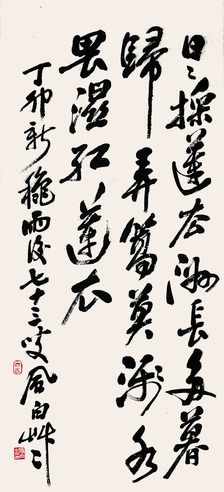 日〻採蓮去洲長多暮
歸弄篙莫濺水
畏濕紅蓮衣
丁卯新穐後七十三叟風白艸〻